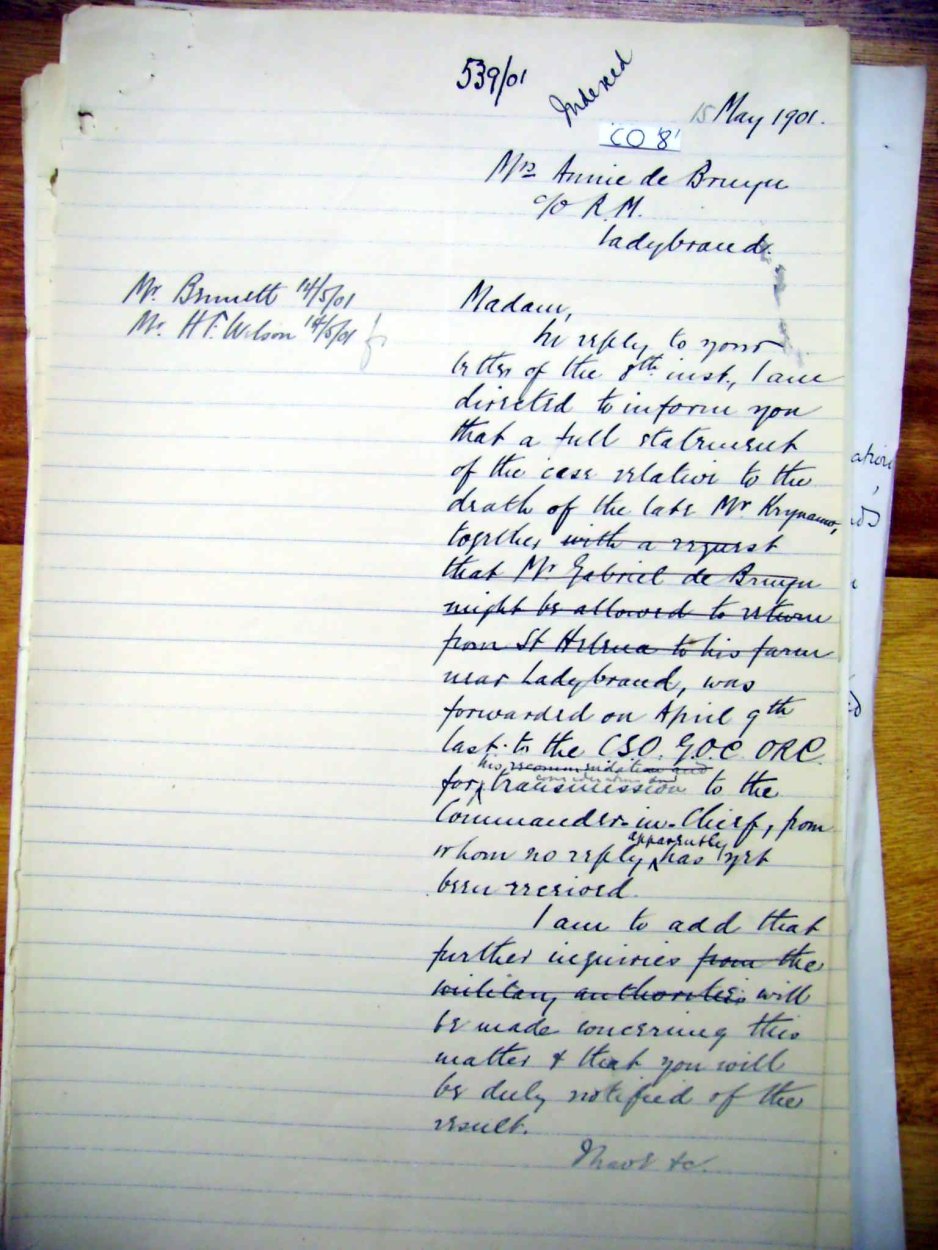 539/01
Indexed
15 May 1901.
CO 8
Mrs Annie de Bruyn
c/o R.M.
Ladybrand.
Mr. Bennett 14/5/01
Mr. H.F. Wilson 14/5/01
Madam,
In reply to your
letter of the 8th inst., I am
directed to inform you
that a full statement
of the case relative to the
death of the late Mr
together with a request
that Mr Gabriel de Bruyn
might be allowed to return
from St Helena to his farm
near Ladybrand, was
forwarded on April 9th
last to the CSO. G.O.C. ORC.
his recommendation and
consideration and
for transmission to the
Commander-in-Chief, from
apparently
whom no reply has yet
been received.
I am to add that
further inquiries from the
military authorities will
be made concerning this
matter & that you will
be duly notified of the
result.
I have &c.